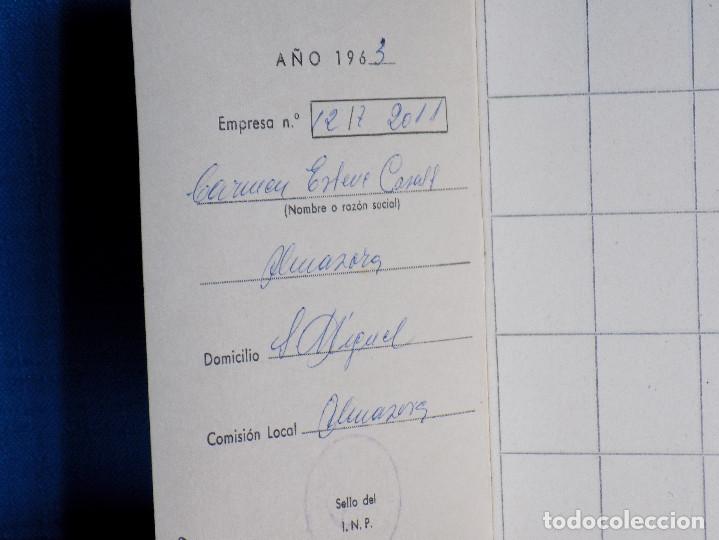 AÑO 1963
Empresa n.º 12/7 2011
Carmen Esteve Casalt
(Nombre o razón social)
Almazora
Domicilio S Miguel
Comisión Local Almazora
Sello del
I. N. P.
todocoleccion.net